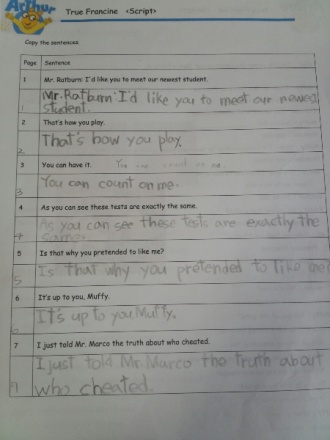 Arthur
True Francine <Script>
Copy the sentences.
Page Sentence
1 Mr. Ratburn: I'd like you to meet our newest student.
1 Mr. Ratburn: I'd like you to meet our newest
student.
2 That's how you play.
2 That's how you play.
3 You can have it. You can count on me.
3 You can count on me.
4 As you can see these tests are exactly the same.
4 As you can see these tests are exactly the
same.
5 Is that why you pretended to like me?
5 Is that why you pretended to like me
6 It's up to you, Muffy.
6 It's up to you, Muffy.
7 I just told Mr. Marco the truth about who cheated.
I just told Mr. Marco the truth about
who cheated.